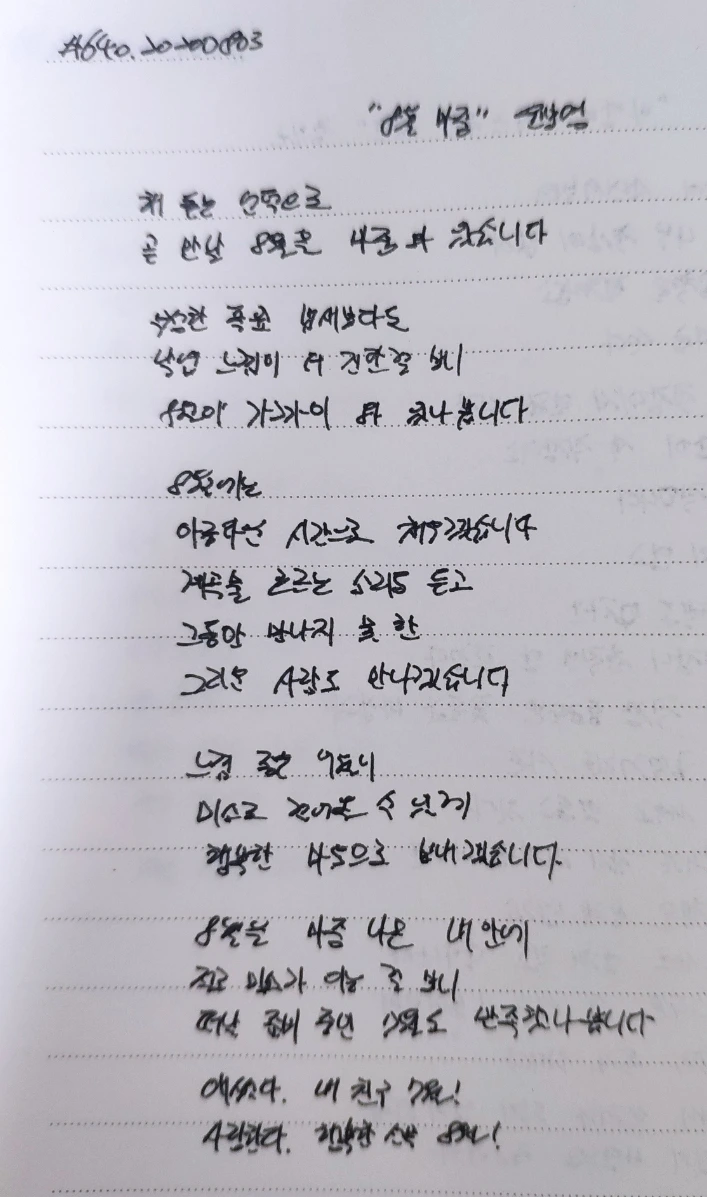 #640. 20200803
"8월 마중" 윤보영
해 뜨는 동쪽으로
곧 만날 8월을 마중 와 있습니다
낯선 느낌이 더 진한 걸 보니
8월이 가까이 와 있나 봅니다
8월에는
아름다운 시간으로 채우겠습니다
계곡을 흐르는 소리도 듣고
그동안 만나지 못 한
그리운 사람도 만나겠습니다
느낌 좋은 9월이
미소로 걸어올 수 있게
행복한 마음으로 보내겠습니다
8월을 마중 나온 내 안에
진로 미소가 이는 걸 보니
떠날 준비 중인 7월도 만족했나 봅니다
애썼다. 내 친구 7월!
사랑한다. 행복한 8월!